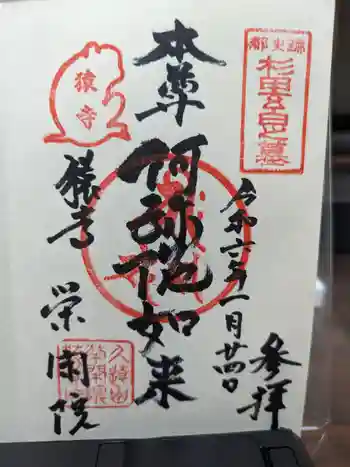 都史蹟
杉田玄白之墓
参拝
令和六年一月廿四日
本尊
阿弥陀如来
猿寺
猿寺
栄閑院